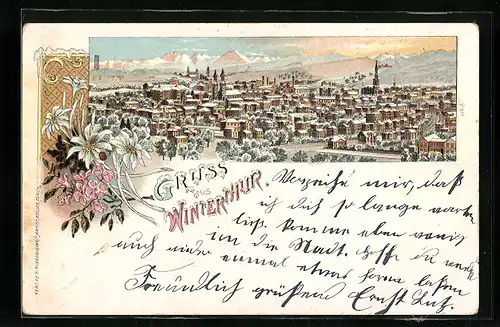 GRUSS
aus
WINTERTHUR.
Verzeihe mir, daß
ich dich so lange warten
ließ. Komme eben wenig
in die Stadt. Hoffe du werdest
auch wieder einmal etwas hören lassen
Freundlich grüßend Ernst